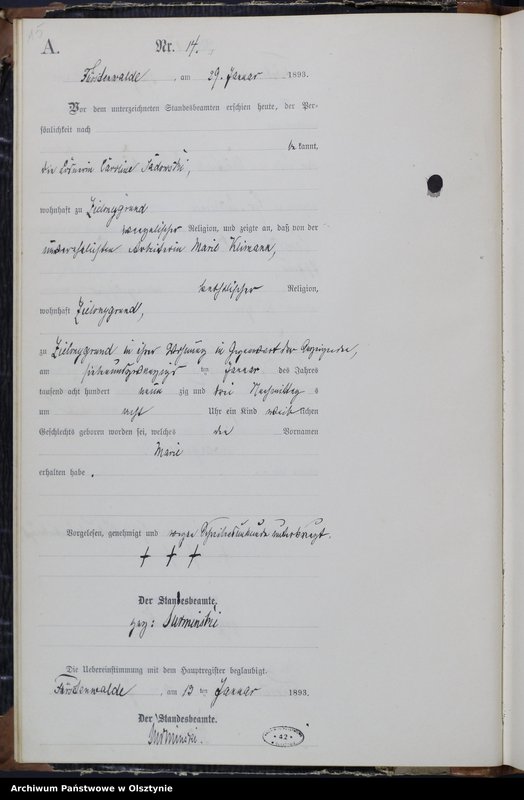 A.
Nr. 14.
Fürstenwalde, am 29. Januar 1893.
Vor dem unterzeichneten Standesbeamten erschien heute, der Per-
sönlichkeit nach
be kannt,
die Caroline Sadowski,
wohnhaft zu Zielonygrund
evangelischer Religion, und zeigte an, daß von der
unverehelichten Arbeiterin Marie Klimann,
katholischer Religion,
wohnhaft Zielonygrund,
zu Zielonygrund in ihrer Wohnung in Gegenwart der Anzeigenden,
am siebenundzwanzigsten Januar des Jahres
tausend acht hundert neun zig und drei Nachmittags
um acht Uhr ein Kind weib lichen
Geschlechts geboren worden sei, welches die Vornamen
Marie
erhalten habe.
Vorgelesen, genehmigt und wegen Schreibensunkunde unterkreuzt.
+ + +
Der Standesbeamte.
gez:
Die Uebereinstimmung mit dem Hauptregister beglaubigt.
Fürstenwalde, am ten Januar 1893.
Der Standesbeamte.
* 42 *
Archiwum Państwowe w Olsztynie